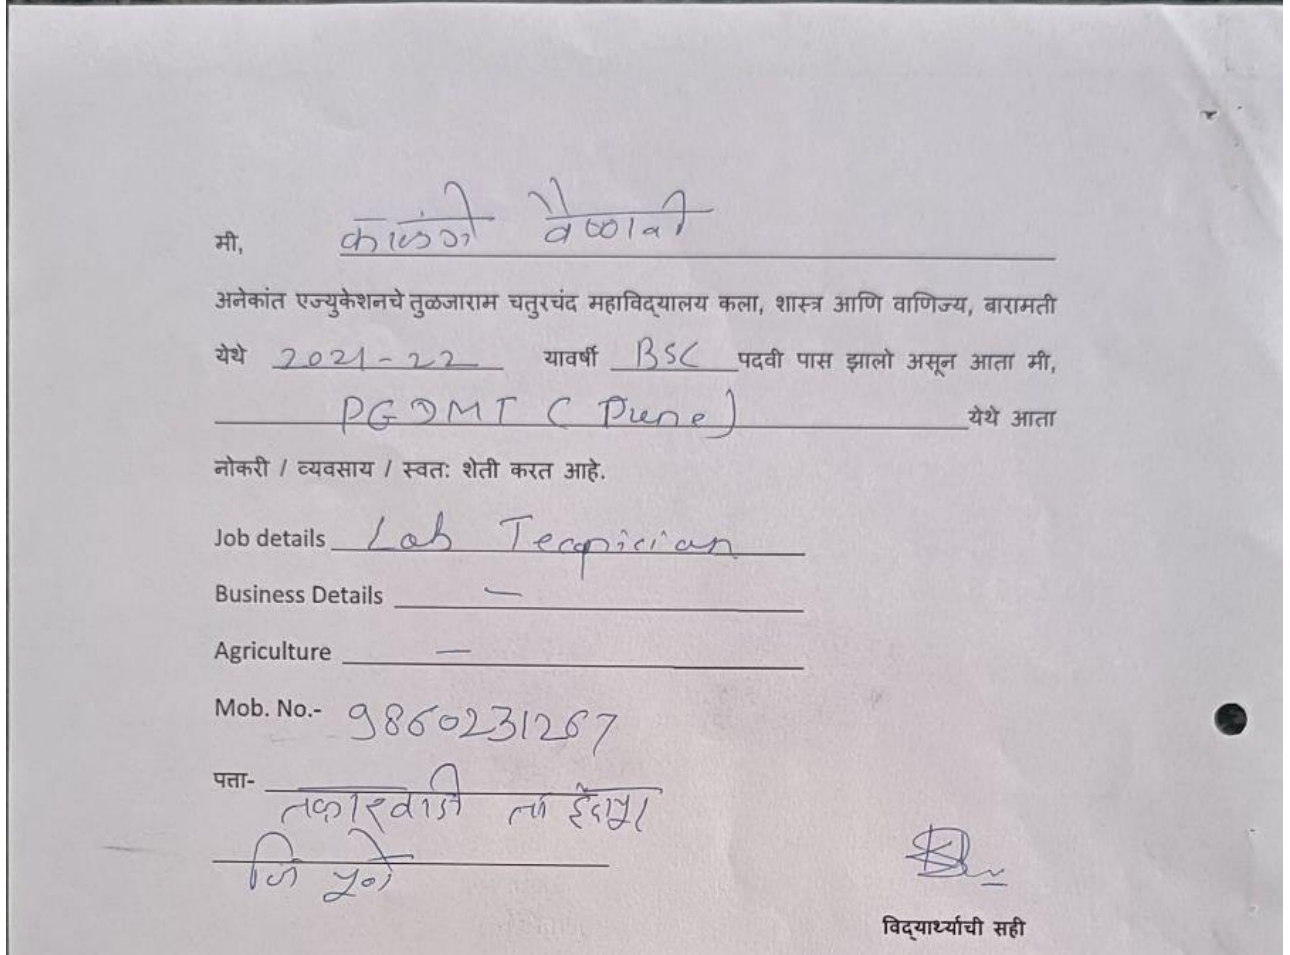 मी, काळंगे वैष्णवी
अनेकांत एज्युकेशनचे तुळजाराम चतुरचंद महाविद्यालय कला, शास्त्र आणि वाणिज्य, बारामती
येथे 2021-22 यावर्षी BSC पदवी पास झालो असून आता मी,
PGDMT ( Pune ) येथे आता
नोकरी / व्यवसाय / स्वतः शेती करत आहे.
Job details Lab Tecqnician
Business Details —
Agriculture —
Mob. No.- 9860231267
पत्ता- तकारवाडी ता इंदापूर
जि पूणे
विद्यार्थ्याची सही